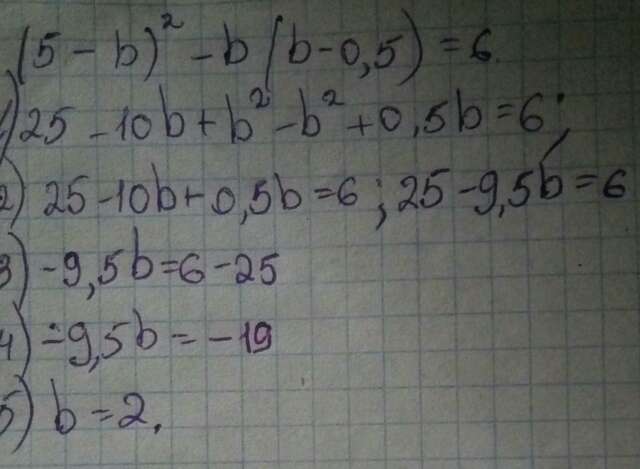 (5 - b)² - b (b - 0,5) = 6
1) 25 - 10b + b² - b² + 0,5b = 6;
2) 25 - 10b + 0,5b = 6; 25 - 9,5b = 6
3) - 9,5b = 6 - 25
4) - 9,5b = - 19
5) b = 2.